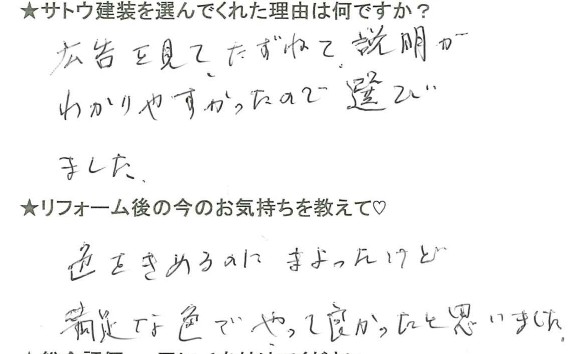 ★サトウ建装を選んでくれた理由は何ですか？
広告を見て、たずねて、説明が
わかりやすかったので選び
ました、
★リフォーム後の今のお気持ちを教えて♡
色をきめるのにまよったけど
満足な色でやって良かったと思いました、